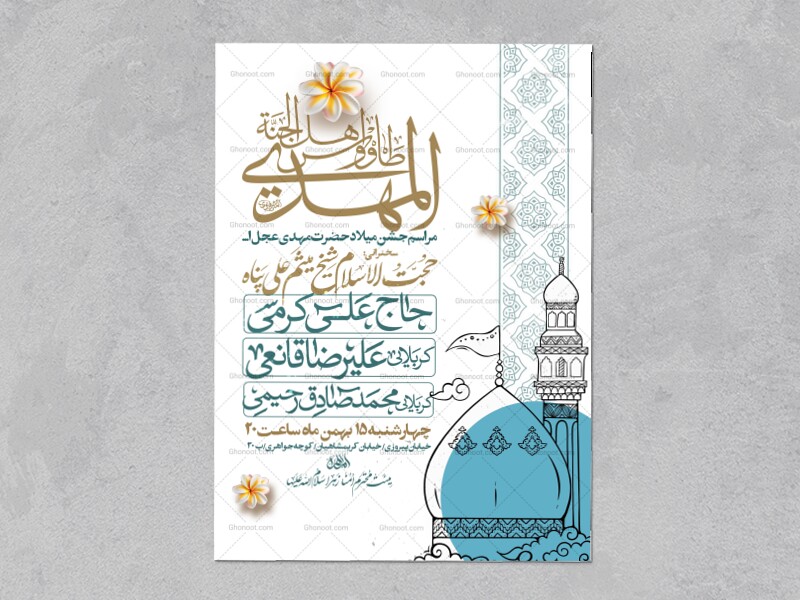 طاووس اهل الجنة
المهدی
مراسم جشن میلاد حضرت مهدی عجل ا..
سخنرانی:
حجت الاسلام شیخ میثم علی پناه
حاج علی کرمی
کربلایی علیرضا قانعی
کربلایی محمدصادق رحیمی
چهارشنبه ۱۵ بهمن ماه ساعت ۲۰
خیابان پیروزی/خیابان کریمشاهیان/کوچه جواهری/پ۲۰
Ghonoot.com